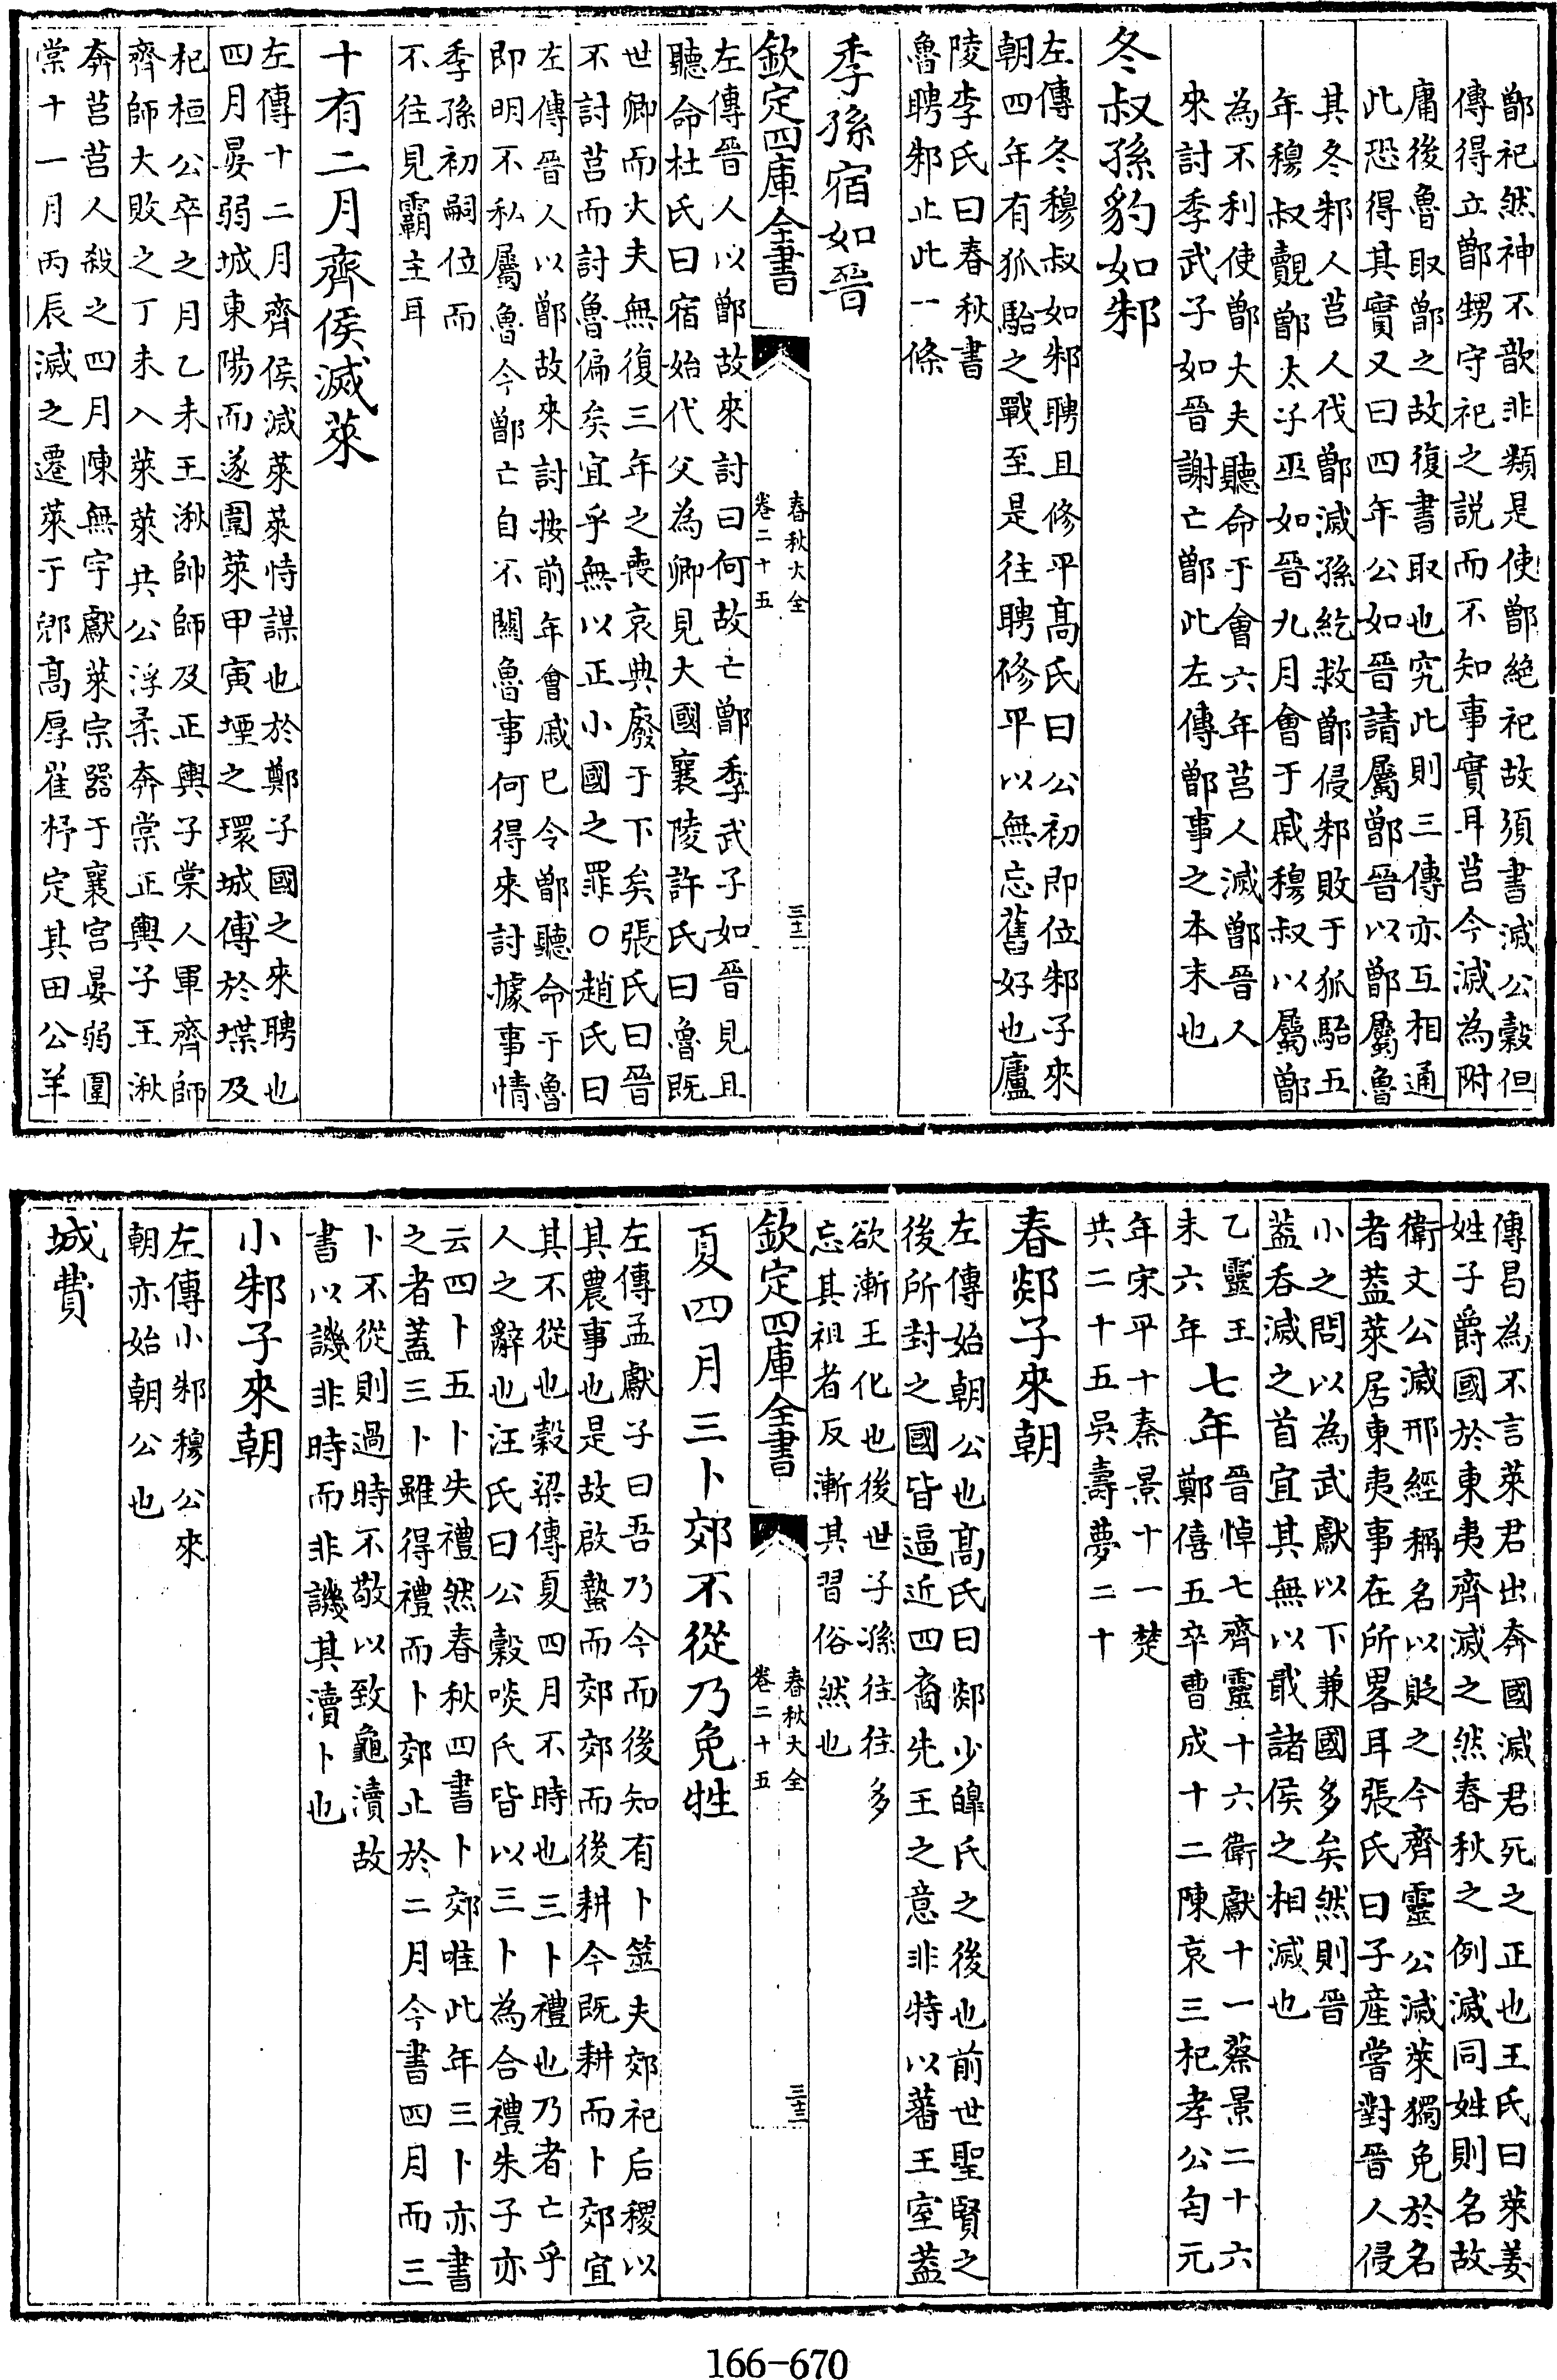 鄫祀然神不歆非類是使鄫絶祀故須書滅公穀但
傳得立鄫甥守祀之説而不知事實耳莒今滅為附
庸後魯取鄫之故復書取也究此則三傳亦互相通
此恐得其實又曰四年公如晉請屬鄫晉以鄫屬魯
其冬邾人莒人伐鄫滅孫紇救鄫侵邾敗于狐駘五
年穆叔覿鄫太子巫如晉九月會于戚穆叔以屬鄫
為不利使鄫大夫聽命于會六年莒人滅鄫晉人
來討季武子如晉謝亡鄫此左傳鄫事之本末也
冬叔孫豹如邾
左傳冬穆叔如邾聘且修平髙氏曰公初即位邾子來
朝四年有狐駘之戰至是往聘修平以無忘舊好也廬
陵李氏曰春秋書
魯聘邾止此一條
季孫宿如晉
欽定四庫全書
春秋大全
卷二十五
三十二
左傳晉人以鄫故來討曰何故亡鄫季武子如晉見且
聽命杜氏曰宿始代父為卿見大國襄陵許氏曰魯既
世卿而大夫無復三年之喪哀典廢于下矣張氏曰晉
不討莒而討魯偏矣宜乎無以正小國之罪○趙氏曰
左傳晉人以鄫故來討按前年會戚已令鄫聽命于魯
即明不私屬魯今鄫亡自不關魯事何得來討據事情
季孫初嗣位而
不往見霸主耳
十有二月齊侯滅萊
左傳十二月齊侯滅萊萊恃謀也於鄭子國之來聘也
四月晏弱城東陽而遂圍萊甲寅堙之環城傅於堞及
杞桓公卒之月乙未王湫帥師及正輿子棠人軍齊師
齊師大敗之丁未入萊萊共公浮柔奔棠正輿子王湫
奔莒莒人殺之四月陳無宇獻萊宗器于襄宫晏弱圍
棠十一月丙辰滅之遷萊于郳髙厚崔杼定其田公羊
傳昌為不言萊君出奔國滅君死之正也王氏曰萊姜
姓子爵國於東夷齊滅之然春秋之例滅同姓則名故
衛文公滅邢經稱名以貶之今齊靈公滅萊獨免於名
者葢萊居東夷事在所畧耳張氏曰子産嘗對晉人侵
小之問以為武獻以下兼國多矣然則晉
葢吞滅之首宜其無以戢諸侯之相滅也
乙靈王
未六年
七年
晉悼七齊靈十六衛獻十一蔡景二十六
鄭僖五卒曹成十二陳哀三杞孝公匄元
年宋平十秦景十一楚
共二十五吳壽夢二十
春郯子來朝
左傳始朝公也髙氏曰郯少皥氏之後也前世聖賢之
後所封之國皆逼近四裔先王之意非特以蕃王室葢
欲漸王化也後世子孫往往多
忘其祖者反漸其習俗然也
欽定四庫全書
春秋大全
卷二十五
三十三
夏四月三卜郊不從乃免牲
左傳孟獻子曰吾乃今而後知有卜筮夫郊祀后稷以
其農事也是故啟蟄而郊郊而後耕今既耕而卜郊宜
其不從也穀梁傳夏四月不時也三卜禮也乃者亡乎
人之辭也汪氏曰公穀啖氏皆以三卜為合禮朱子亦
云四卜五卜失禮然春秋四書卜郊唯此年三卜亦書
之者蓋三卜雖得禮而卜郊止於二月今書四月而三
卜不從則過時不敬以致龜瀆故
書以譏非時而非譏其瀆卜也
小邾子來朝
左傳小邾穆公來
朝亦始朝公也
城費
166-670